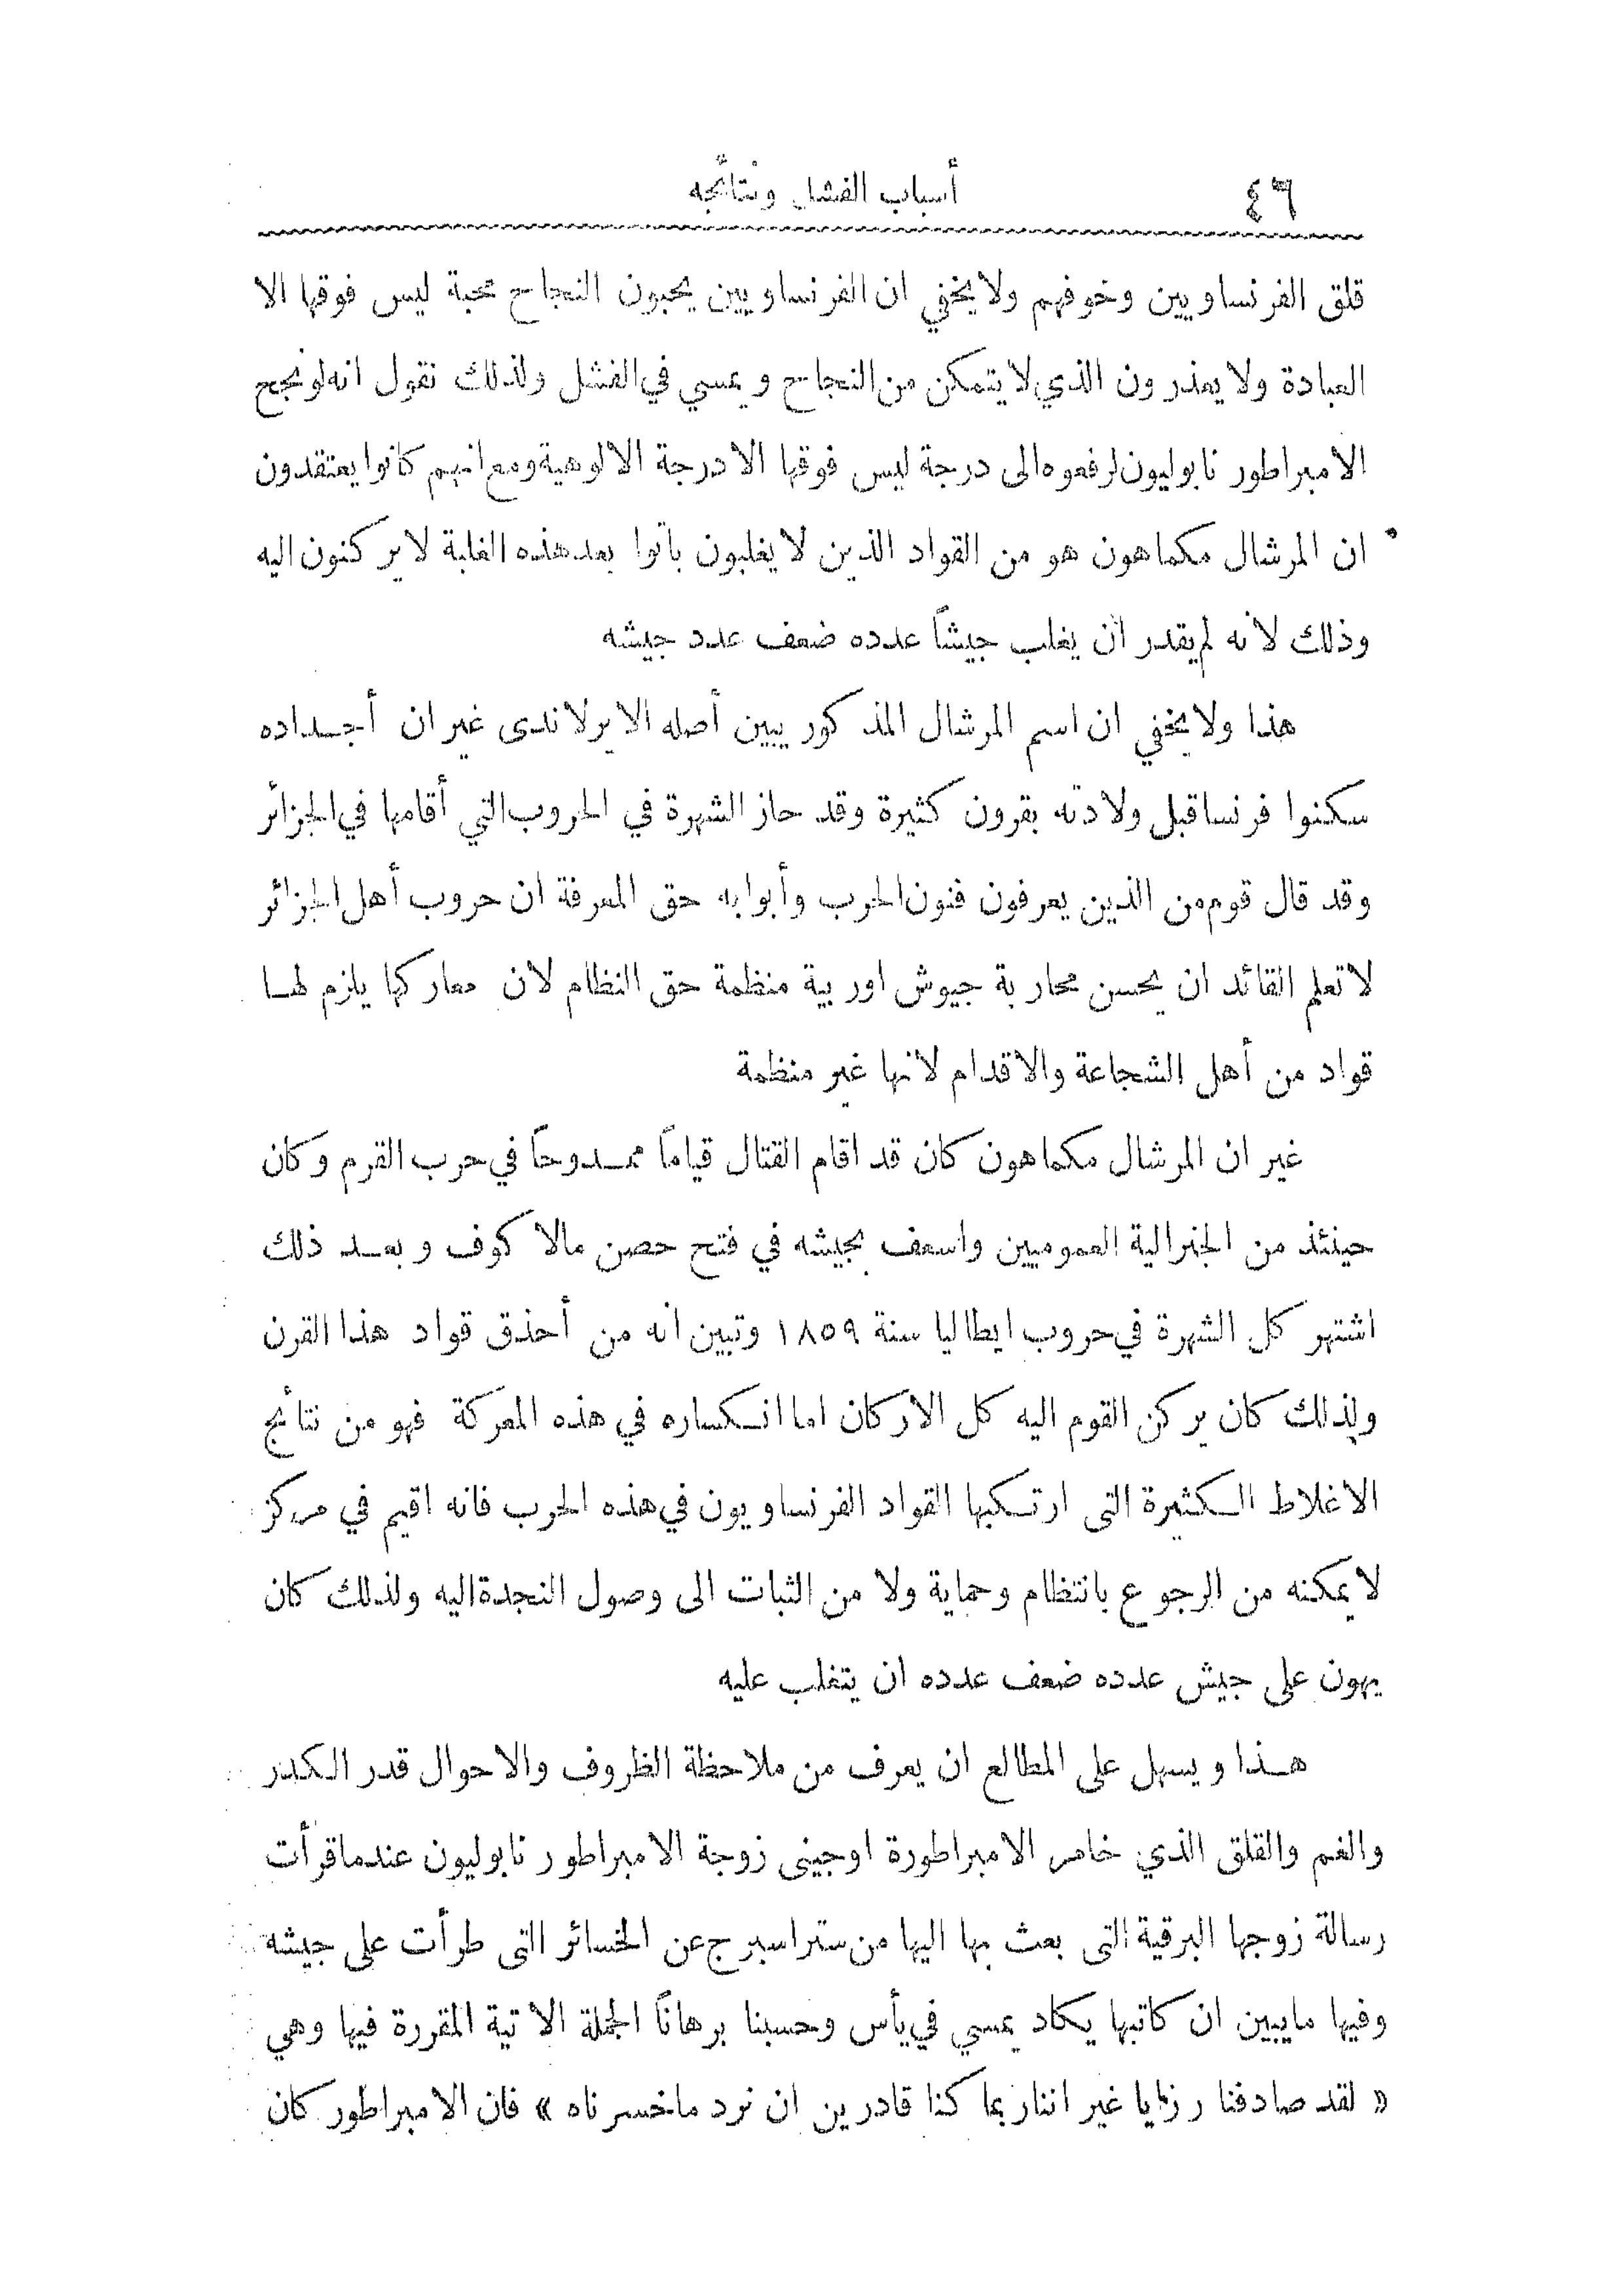 ٤٦
أسباب الفشل ونتائجه
قلق الفرنساويين وخوفهم ولا يخفي ان الفرنساويين يحبون النجاح محبة ليس فوقها الا
العبادة ولا يعذرون الذي لا يتمكن من النجاح ويمسي في الفشل ولذلك نقول انه لو نجح
الامبراطور نابوليون لرفعوه الى درجة ليس فوقها الا درجة الالوهية ومع انهم كانوا يعتقدون
ان المرشال مكماهون هو من القواد الذين لا يغلبون باتوا بعد هذه الغلبة لا يركنون اليه
وذلك لانه لم يقدر أن يغلب جيشاً عدده ضعف عدد جيشه
هذا ولا يخفي ان اسم المرشال المذكور يبين أصله الايرلاندى غير ان أجداده
سكنوا فرنسا قبل ولادته بقرون كثيرة وقد حاز الشهرة في الحروب التي أقامها في الجزائر
وقد قال قوم من الذين يعرفون فنون الحرب وأبوابه حق المعرفة ان حروب أهل الجزائر
لا تعلم القائد ان يحسن محاربة جيوش اوربية منظمة حق النظام لان معاركها يلزم لها
قواد من أهل الشجاعة والاقدام لانها غير منظمة
غير ان المرشال مكماهون كان قد اقام القتال قياماً ممدوحاً في حرب القرم وكان
حينئذ من الجنرالية العموميين واسعف بجيشه في فتح حصن مالاكوف وبعد ذلك
اشتهر كل الشهرة في حروب ايطاليا سنة ١٨٥٩ وتبين انه من أحذق قواد هذا القرن
ولذلك كان يركن القوم اليه كل الاركان اما انكساره في هذه المعركة فهو من نتائج
الاغلاط الكثيرة التى ارتكبها القواد الفرنساويون في هذه الحرب فانه اقيم في مركز
لا يمكنه من الرجوع بانتظام وحماية ولا من الثبات الى وصول النجدة اليه ولذلك كان
يهون على جيش عدده ضعف عدده ان يتغلب عليه
هذا ويسهل على المطالع ان يعرف من ملاحظة الظروف والاحوال قدر الكدر
والغم والقلق الذي خامر الامبراطورة اوجينى زوجة الامبراطور نابوليون عندما قرأت
رسالة زوجها البرقية التى بعث بها اليها من ستراسبرج عن الخسائر التى طرأت على جيشه
وفيها ما يبين ان كاتبها يكاد يمسي في يأس وحسبنا برهاناً الجملة الاتية المقررة فيها وهي
« لقد صادفنا رزايا غير اننا ربما كنا قادرين ان نرد ما خسرناه » فان الامبراطور كان